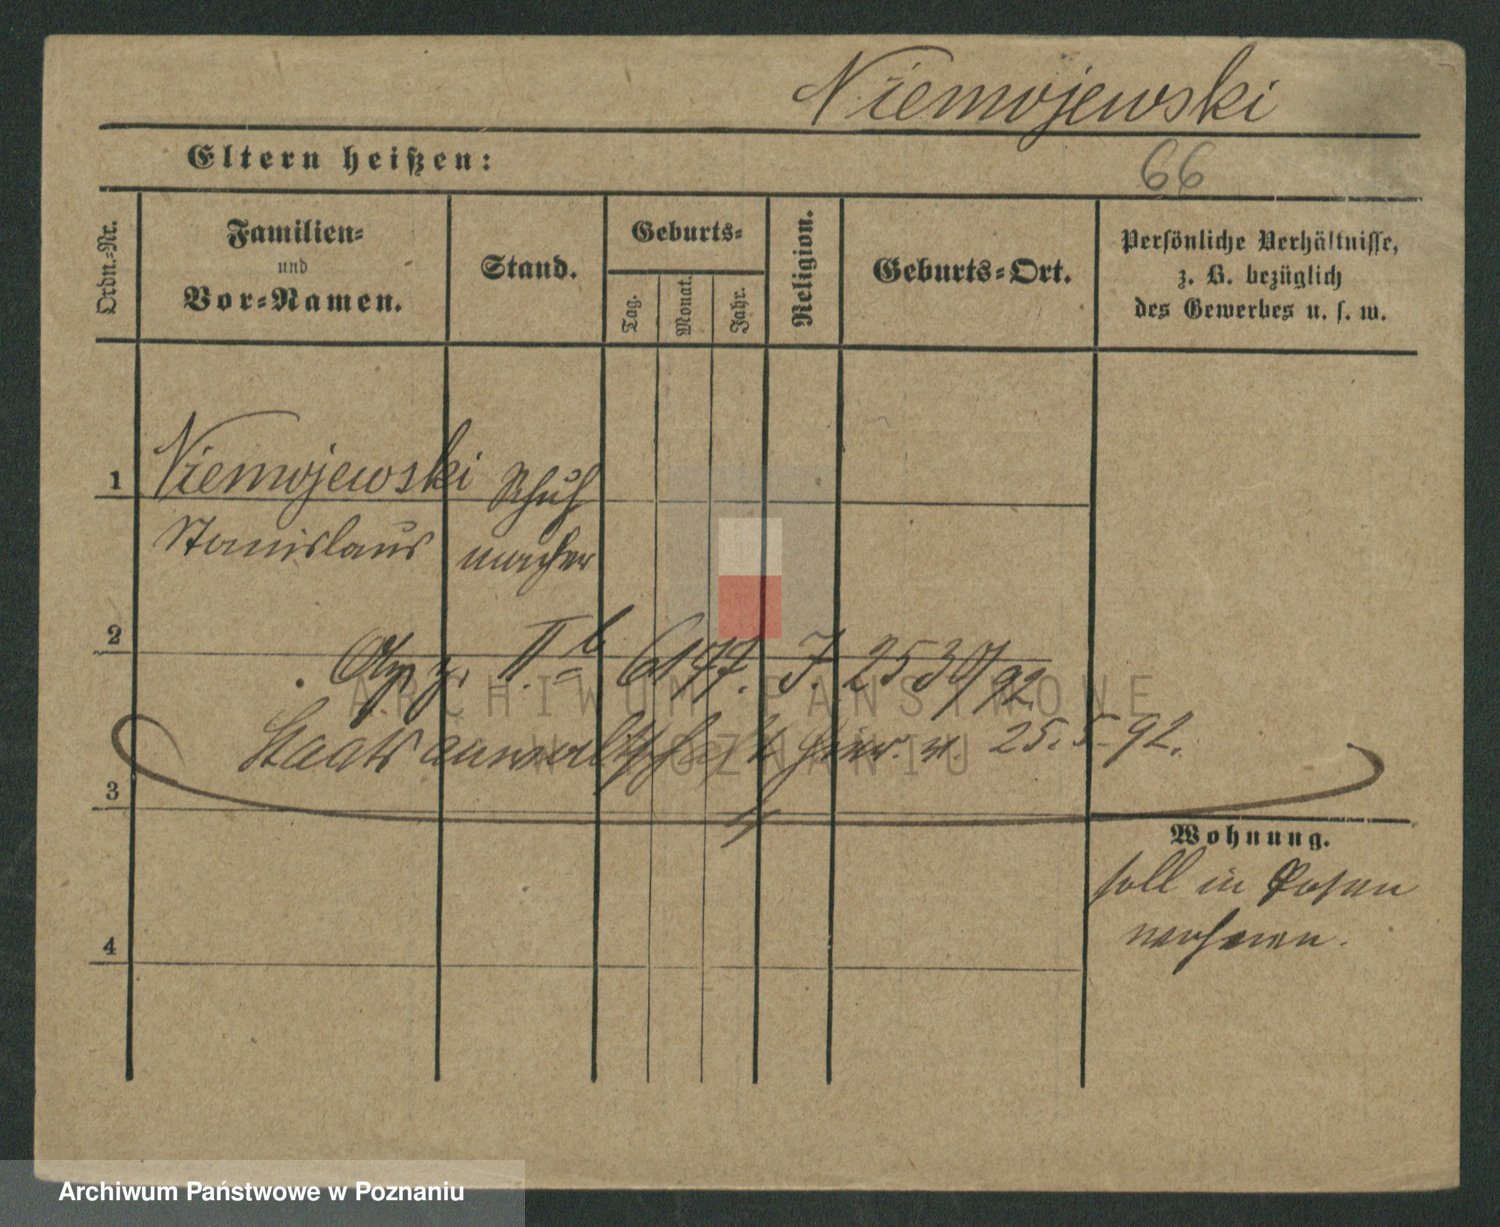 Niemojewski
Eltern heißen:
66
Ordn.-Nr.
Familien-
und
Vor-Namen.
Stand.
Geburts-
Tag.
Monat.
Jahr.
Religion.
Geburts-Ort.
Persönliche Verhältnisse,
z. B. bezüglich
des Gewerbes u. s. w.
1
Niemojewski
Schuh
Stanislaus
macher
2
II b J. 2530/92
ARCHIWUM PAŃSTWOWE
W POZNANIU
Staatsanwaltschaft hier v. 25.5.92.
3
Wohnung.
soll in Posen
wohnen.
4
Archiwum Państwowe w Poznaniu